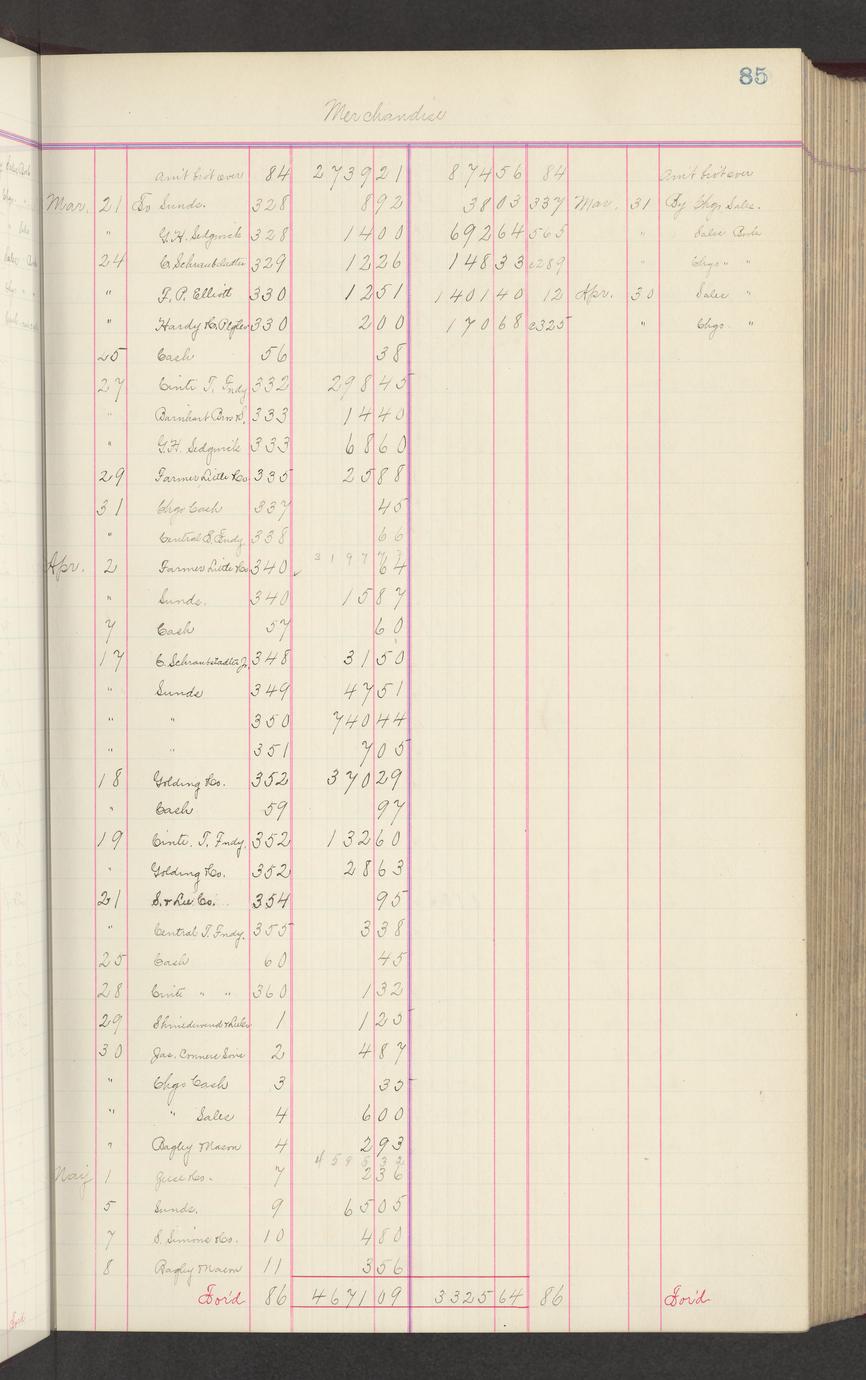 85
Merchandise
Am't bro't over 84 2739 21 874 56 84 Am't bro't over
Mar. 21 To Sunds. 328 8 92 38 03 337 Mar. 31 By Chgs Sales.
" G.H. Sedgwick 328 14 00 692 64 565 " Sales Book
24 C. Schraubstadter 329 12 26 148 33 c289 " Chgs " "
" F. P. Elliott 330 12 51 1401 40 12 Apr. 30 Sales "
" Hardy 330 2 00 170 68 c325 " Chgs. "
25 Cash 56 38
27 Cinti T. Fndy 332 298 45
" Barnhart Bros & S. 333 14 40
" G.H. Sedgwick 333 68 60
29 Farmer Little & Co 335 25 88
31 Chgs Cash 337 45
" Central T. Fndy. 338 66
3197 77
Apr. 2 Farmer Little & Co 340 ✓ 64
" Sunds. 340 15 87
7 Cash 57 60
17 C. Schraubstadter Jr. 348 31 50
" Sunds 349 47 51
" " 350 740 44
" " 351 7 05
18 Golding & Co. 352 370 29
" Cash 59 97
19 Cinti. T. Fndy. 352 132 60
" Golding & Co. 352 28 63
21 S. & Lee Co. 354 95
" Central T. Fndy. 355 3 38
25 Cash 60 45
28 Cinti " " 360 1 32
29 Shniedewend & Lee Co 1 1 25
30 Jas. Conners Sons 2 4 87
" Chgs Cash 3 35
" " Sales 4 6 00
" Bagley Mason 4 2 93
4595 32
May 1 & Co. 7 2 36
5 Sunds. 9 65 05
7 S. Simons & Co. 10 4 80
8 Bagley Mason 11 3 56
For'd 86 4671 09 3325 64 86 For'd